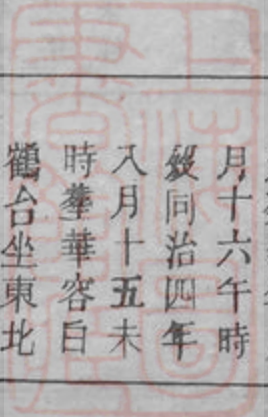 月十六午時
歿同治四年
八月十五未
時塟華容白
鶴台坐東北